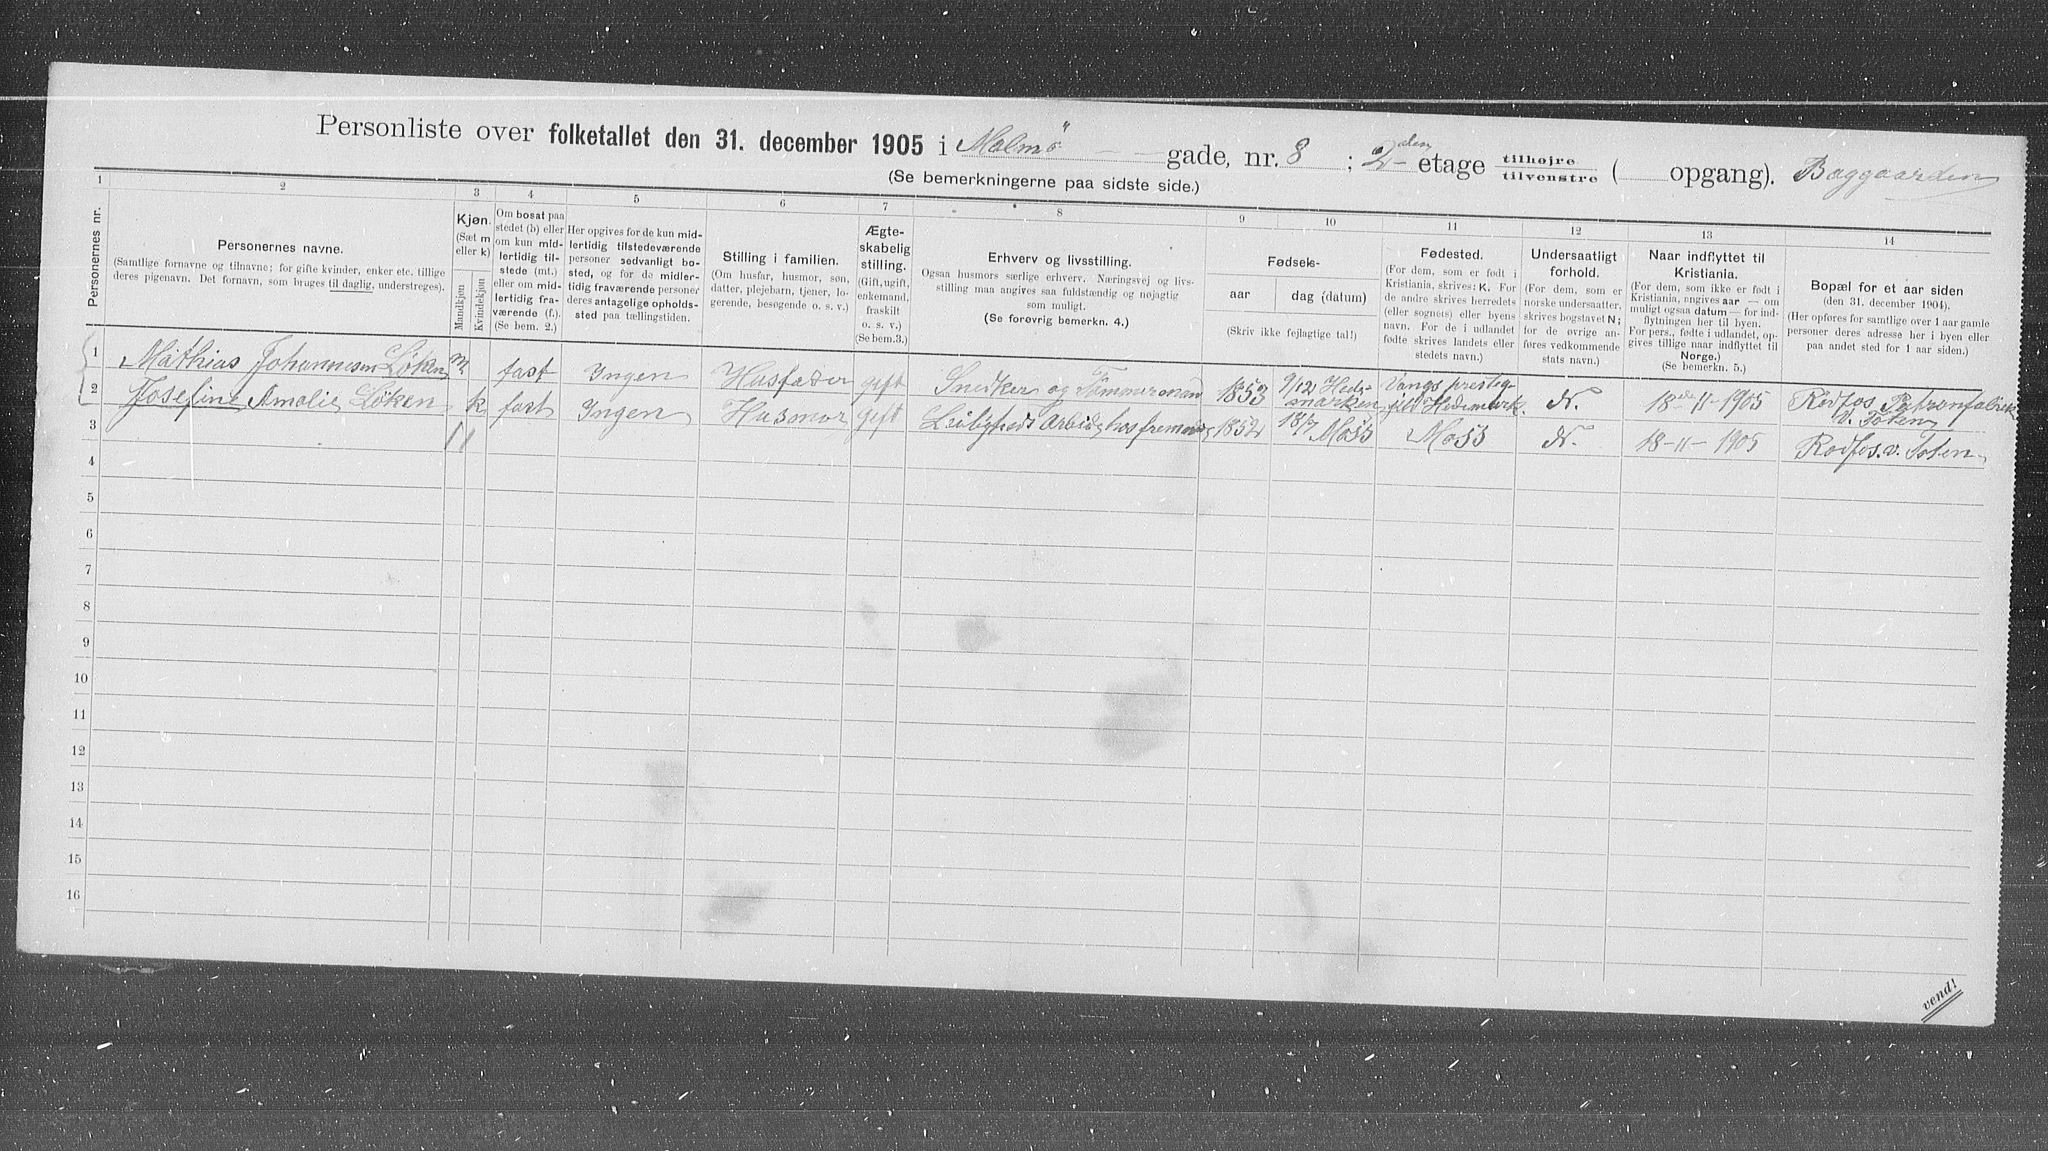 Personliste over folketallet den 31. december 1905 i Malmö gade, nr. 8 ; 2den etage tilhøjre tilvenstre ( opgang). Baggaarden
(Se bemerkningerne paa sidste side.)
1 2 3 4 5 6 7 8 9 10 11 12 13 14
Personernes nr.
Personernes navne.
(Samtlige fornavne og tilnavne; for gifte kvinder, enker etc. tillige
deres pigenavn. Det fornavn, som bruges til daglig, understreges).
Kjøn.
(Sæt m
eller k)
Mandkjøn
Kvindekjøn
Om bosat paa
stedet (b) eller
om kun mid-
lertidig til-
stede (mt.)
eller om mid-
lertidig fra-
værende (f.).
(Se bem. 2.)
Her opgives for de kun mid-
lertidig tilstedeværende
personer sedvanligt bo-
sted, og for de midler-
tidig fraværende personer
deres antagelige opholds-
sted paa tællingstiden.
Stilling i familien.
(Om husfar, husmor, søn,
datter, plejebarn, tjener, lo-
gerende, besøgende o. s. v.)
Ægte-
skabelig
stilling.
(Gift, ugift,
enkemand,
fraskilt
o. s. v.)
(Se bem.3.)
Erhverv og livsstilling.
Ogsaa husmors særlige erhverv. Næringsvej og livs-
stilling maa angives saa fuldstændig og nøjagtig
som muligt.
(Se forøvrig bemerkn. 4.)
Fødsels-
aar dag (datum)
(Skriv ikke fejlagtige tal!)
Fødested.
(For dem, som er født i
Kristiania, skrives: K. For
de andre skrives herredets
(eller sognets) eller byens
navn. For de i udlandet
fødte skrives landets eller
stedets navn.)
Undersaatligt
forhold.
(For dem, som er
norske undersaatter,
skrives bogstavet N;
for de øvrige an-
føres vedkommende
stats navn.)
Naar indflyttet til
Kristiania.
(For dem, som ikke er født i
Kristiania, angives aar — om
muligt ogsaa datum — for ind-
flytningen her til byen.
For pers., fødte i udlandet, op-
gives tillige naar indflyttet til
Norge.)
(Se bemerkn. 5.)
Bopæl for et aar siden
(den 31. december 1904).
(Her opføres for samtlige over 1 aar gamle
personer deres adresse her i byen eller
paa andet sted for 1 aar siden.)
1 Mathias Johannesen Løken m fast Ingen Husfader gift Snedker og Tömmermand 1853 9/12 Hede-marken Vangs prestegjeld Hedemark. N. 18de-11-1905 Rødfos Patronfabrik V. Toten
2 Josefine Amalie Løken k fast Ingen Husmor gift 1852 18/7 Moss Moss N. 18-11-1905 Rødfos. v. Toten
3
4
5
6
7
8
9
10
11
12
13
14
15
16
vend!